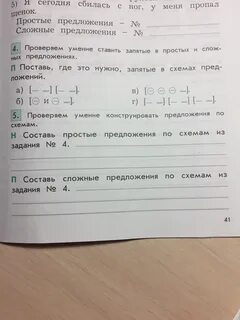 5) Я сегодня сбилась с ног, у меня пропал
щенок.
Простые предложения – №
Сложные предложения – №
4. Проверяем умение ставить запятые в простых и слож-
ных предложениях.
П Поставь, где это нужно, запятые в схемах пред-
ложений.
а) [— ...]. [— ...].
б) [⊖ и ⊖ ...].
в) [⊖ ⊖ ...].
г) [— ...], [— ...].
5. Проверяем умение конструировать предложения по
схемам.
Н Составь простые предложения по схемам из
задания № 4.
П Составь сложные предложения по схемам из
задания № 4.
41